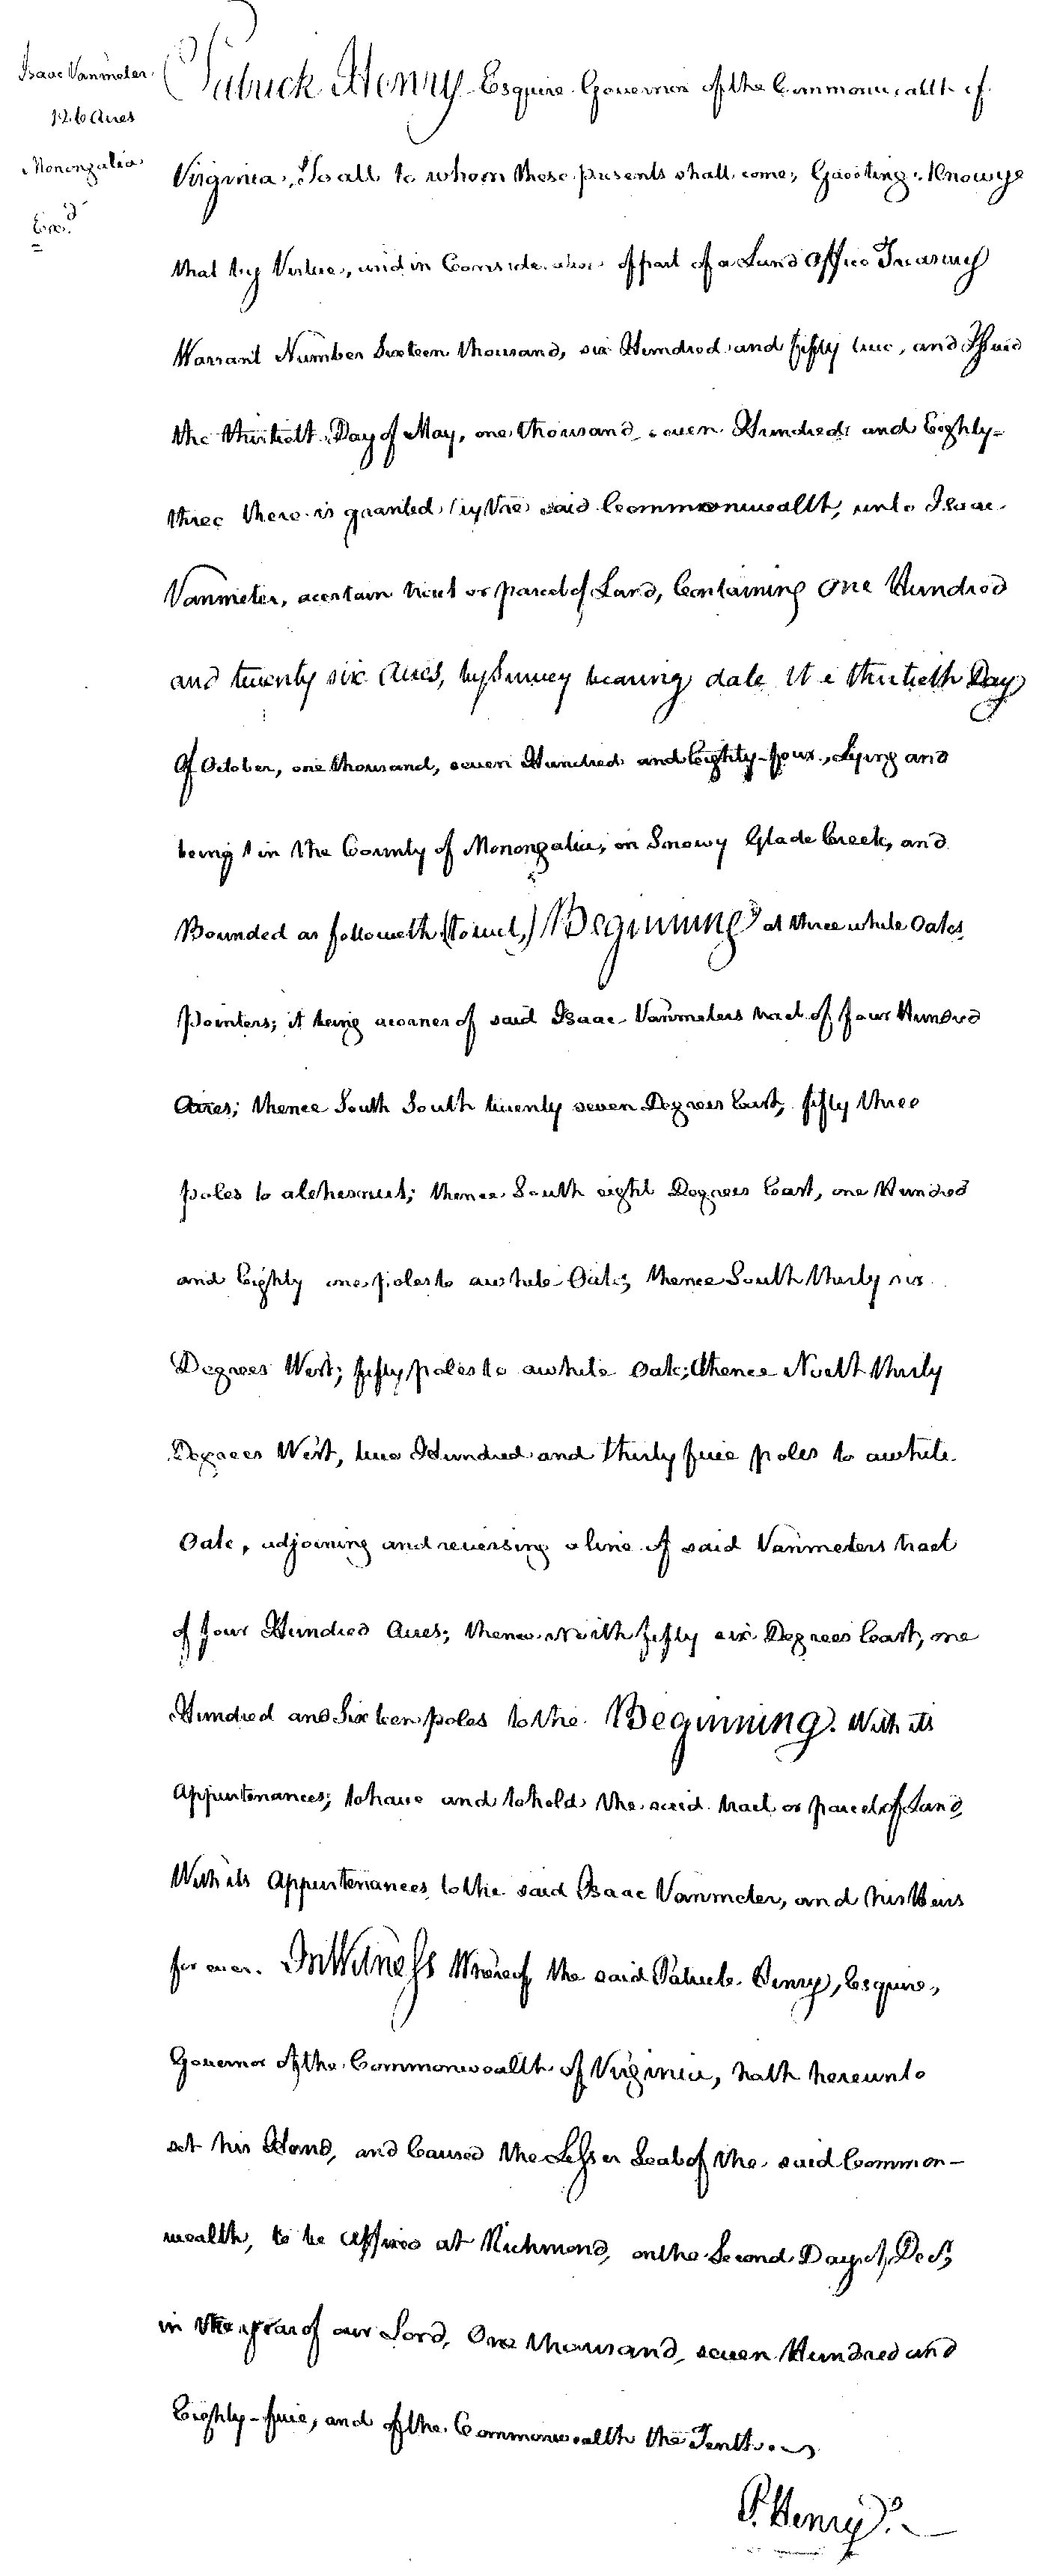 Isaac Vanmeter,
126 Acres
Monongalia
Exd.
Patrick Henry Esquire Governor of the Commonwealth of
Virginia, To all to whom these presents shall come, Greeting: Know ye
that by Virtue, and in Consideration of part of a Land Office Treasury
Warrant Number Sixteen thousand, six Hundred and fifty two, and Issued
the thirtieth Day of May, one thousand seven Hundred and Eighty-
three there is granted by the said Commonwealth, unto Isaac
Vanmeter, a certain tract or parcel of Land, Containing One Hundred
and twenty six Acres, by Survey bearing date the thirtieth Day
Of October, one thousand, seven Hundred and Eighty-four, Lying and
being in the County of Monongalia, on Snowy Glade Creek, and
Bounded as followeth (towit,) Beginning at three white Oaks
pointers; it being a corner of said Isaac Vanmeters tract of four Hundred
Acres; thence South South twenty seven Degrees East, fifty three
poles to a Chesnut; thence South eight Degrees East, one Hundred
and Eighty one poles to a white Oak; thence South thirty six
Degrees West; fifty poles to a white Oak; thence North thirty
Degrees West, two Hundred and thirty five poles to a white
Oak, adjoining and reversing a line of said Vanmeters tract
of four Hundred Acres; thence North fifty six Degrees East, one
Hundred and Sixteen poles to the Beginning. With its
Appurtenances; to have and to hold the said tract or parcel of Land
With its Appurtenances to the said Isaac Vanmeter, and his Heirs
for ever. In Witness Whereof the said Patrick Henry, Esquire,
Governor of the Commonwealth of Virginia, hath hereunto
set his Hand, and Caused the Lesser Seal of the said Common-
wealth, to be Affixed at Richmond, on the Second Day of Decr.
in the year of our Lord, One thousand, seven Hundred and
Eighty-five, and of the Commonwealth the Tenth.
P. Henry